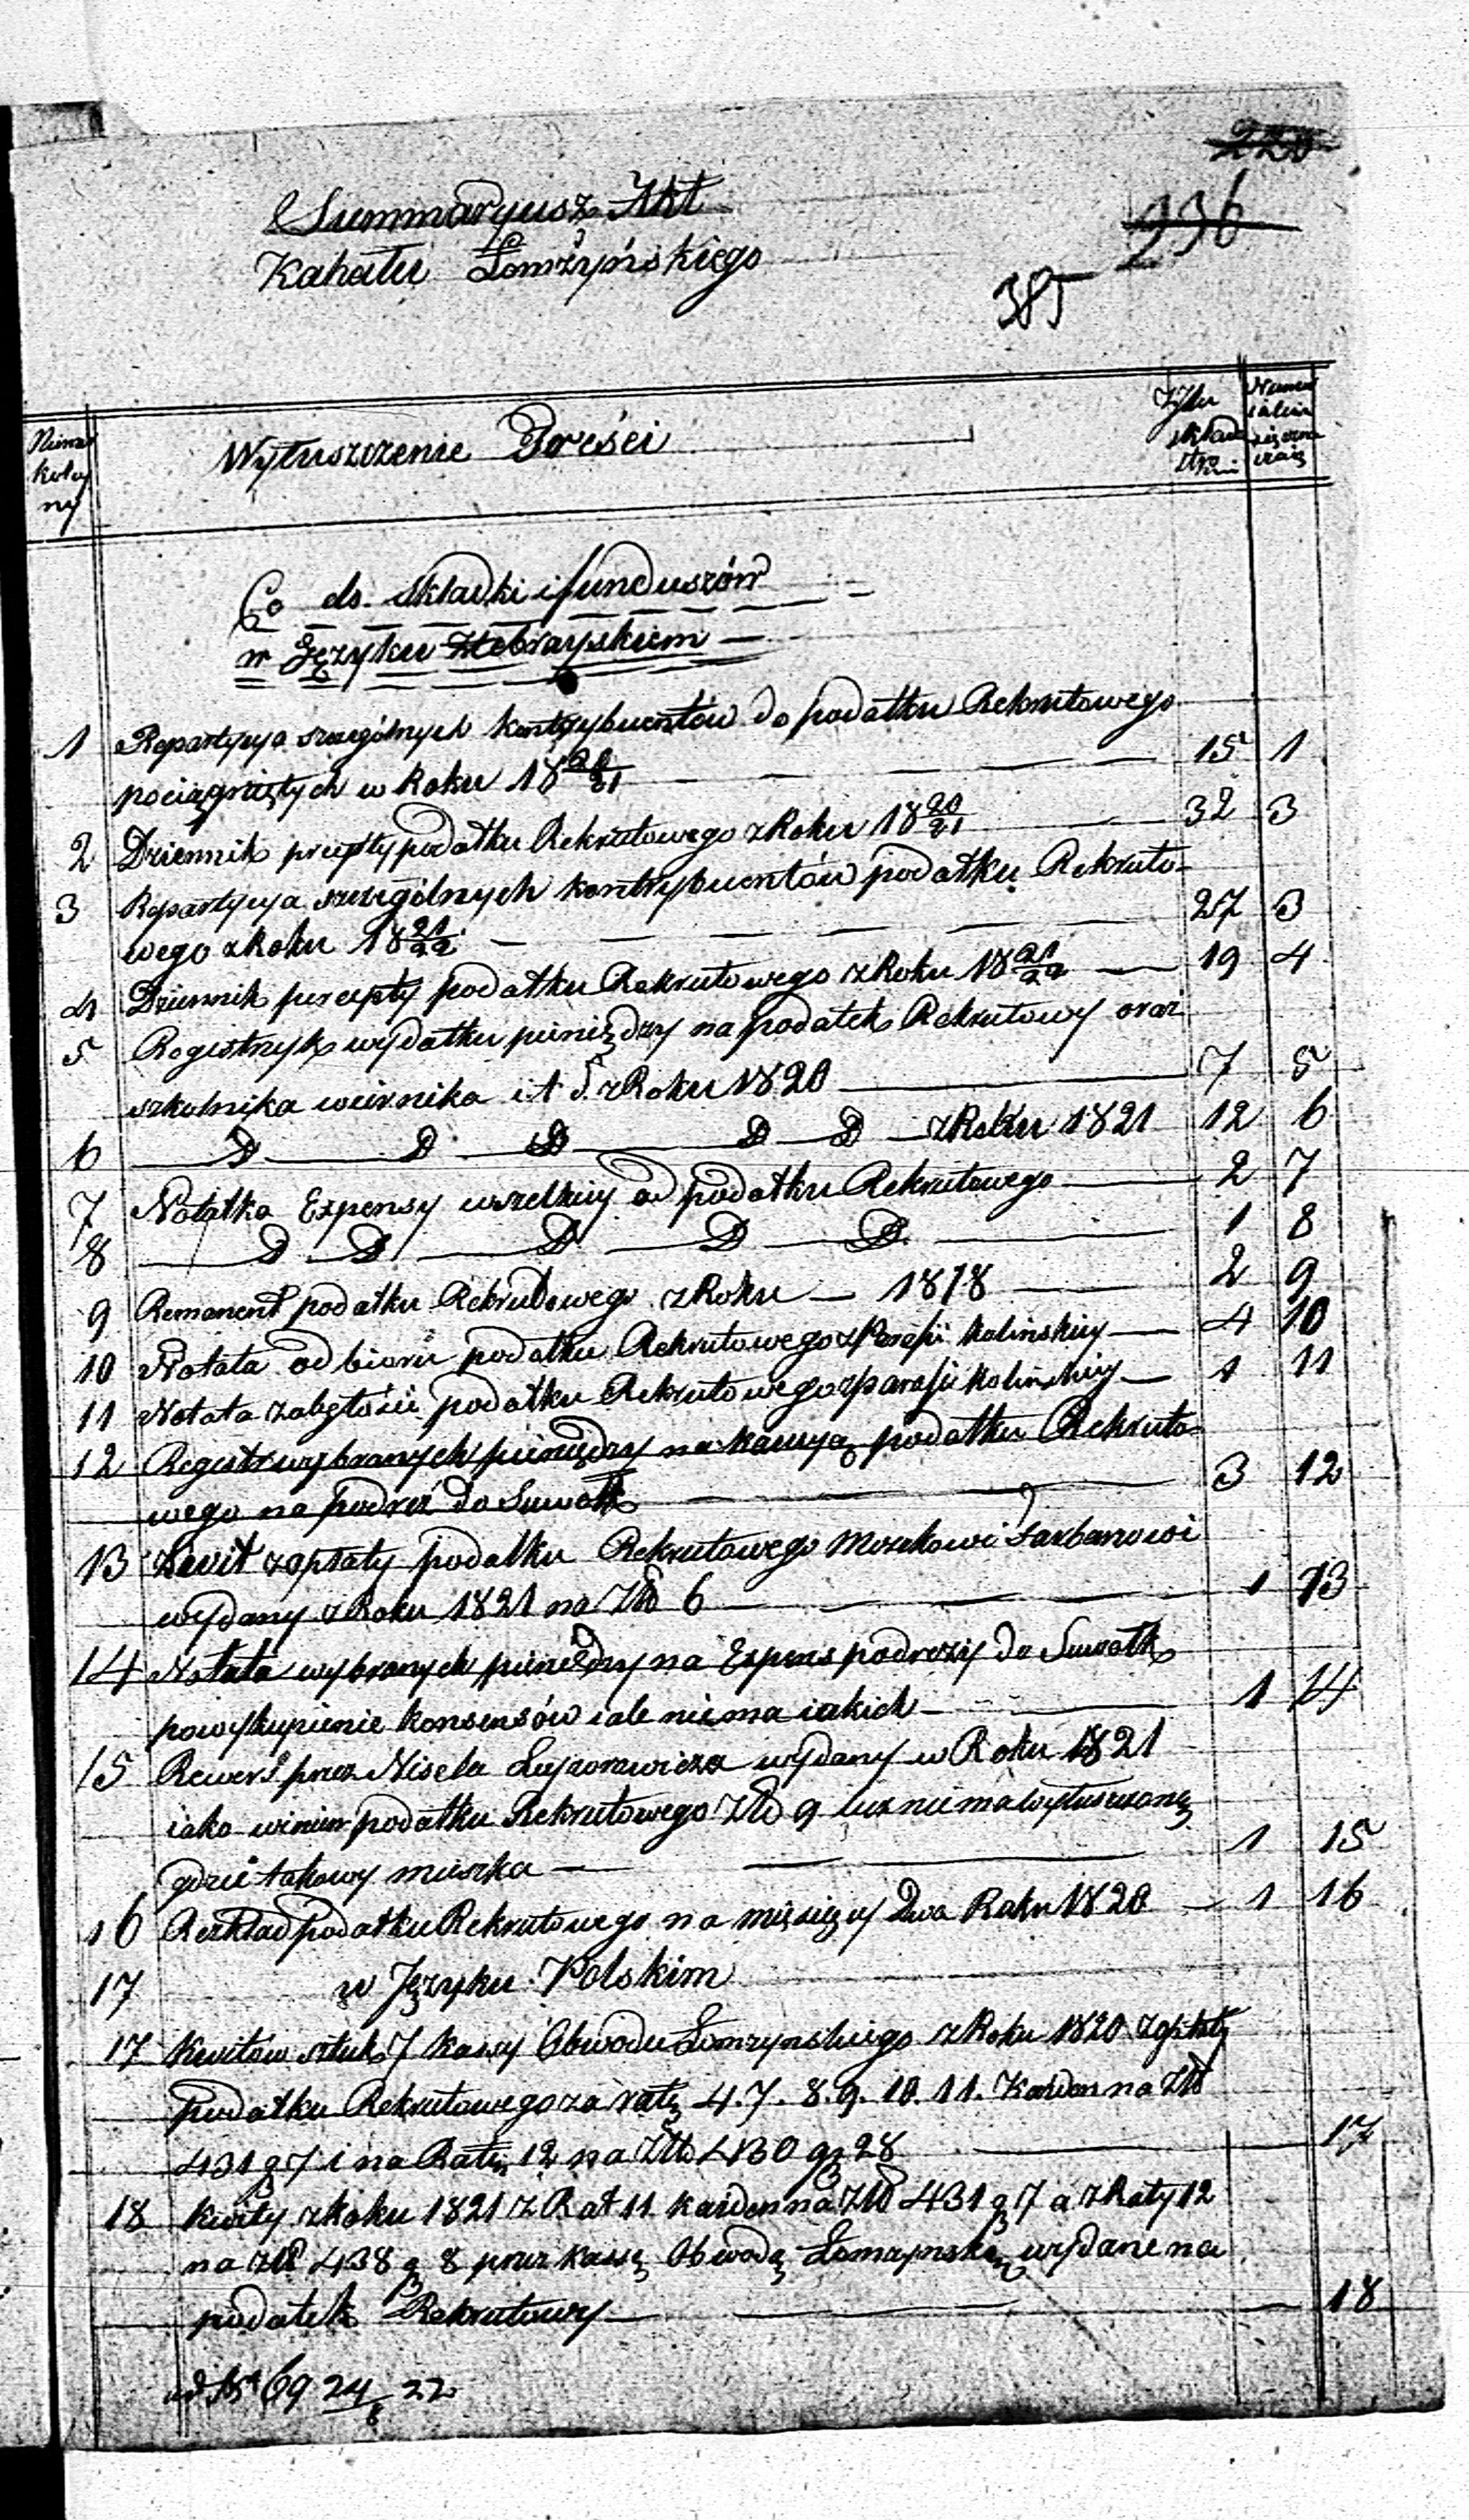 220
236
385
Summaryusz Akt
Kahału Łomżyńskiego
Numer koley ny
Wyłuszczenie Treści
Tylu składa
Numer
Co do Składki i funduszów
w Języku Hebrayskiem
1 Repartycya szczegόlnych kontrybuentów do podatku Rekrutowego
pociągniętych w Roku 18 20/21 15 1
2 Dziennik percepty podatku Rekrutowego z Roku 18 20/21 32 3
3 Repartycya szczegόlnych kontrybuentów podatku Rekruto-
wego z Roku 18 21/22 27 3
4 Dziennik percepty podatku Rekrutowego z Roku 18 21/22 19 4
5 Registrzyk wydatku pieniędzy na podatek Rekrutowy oraz
szkolnika wiernika i t d. z Roku 1820 7 5
6 D D D D D z Roku 1821 12 6
7 Notatka Expensy wszelkiey od podatku Rekrutowego 2 7
8 D D D D D 1 8
9 Remanent podatku Rekrutowego z Roku 1818 2 9
10 Notata odbioru podatku Rekrutowego z Parafii Kolinskiey 4 10
11 Notata zaległości podatku Rekrutowego z parafii Kolinskiey 1 11
12 Registr wybranych pieniędzy na kaucyą podatku Rekruto-
wego na podroż do Suwałk 3 12
13 Kwit z opłaty podatku Rekrutowego Moszkowi Farbarowi
wydany z Roku 1821 na Złł 6 1 13
14 Notata wybranych pieniędzy na Expens podroży do Suwałk
po wykupienie konsensów iale niema iakich 1 14
15 Rewers przez Nisela Leyzorowicza wydany w Roku 1821
iako winien podatku Rekrutowego Złł 9 lecz niema wyłuszczone
gdzie takowy mieszka 1 15
16 Rozkład podatku Rekrutowego na miesięcy Dwa Roku 1820 1 16
17 w Języku Polskim
17 Kwitów sztuk 7 Kassy Obwodu Łomżyńskiego z Roku 1820 z opłaty
podatku Rekrutowego za ratę 4. 7. 8. 9. 10. 11. Każden na Złł
431 g 7 i na Ratę 12 na Złł 430 gr 28 17
18 Kwity z Roku 1821 z Rat 11 każden na Złł 431 g 7 a z Raty 12
na Złł 438 g 8 przez kassę Obwodą Łomżynską wydane na
podatek Rekrutowy 18
ad No 69 24/8 22